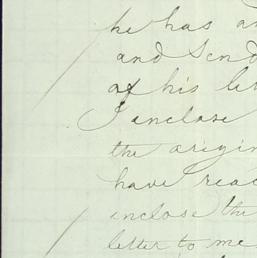 he has an
and send
of his
I enclose
the origin
have reac
inclose the
letter to me